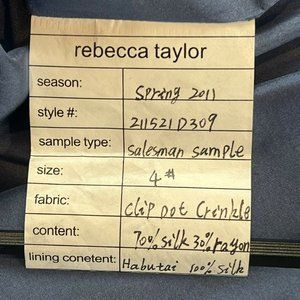 rebecca taylor
season: Spring 2011
style #: 211521D309
sample type: Salesman Sample
size: 4#
fabric: Clip Dot Crinkle
content: 70% silk 30% rayon
lining conetent: Habutai 100% silk